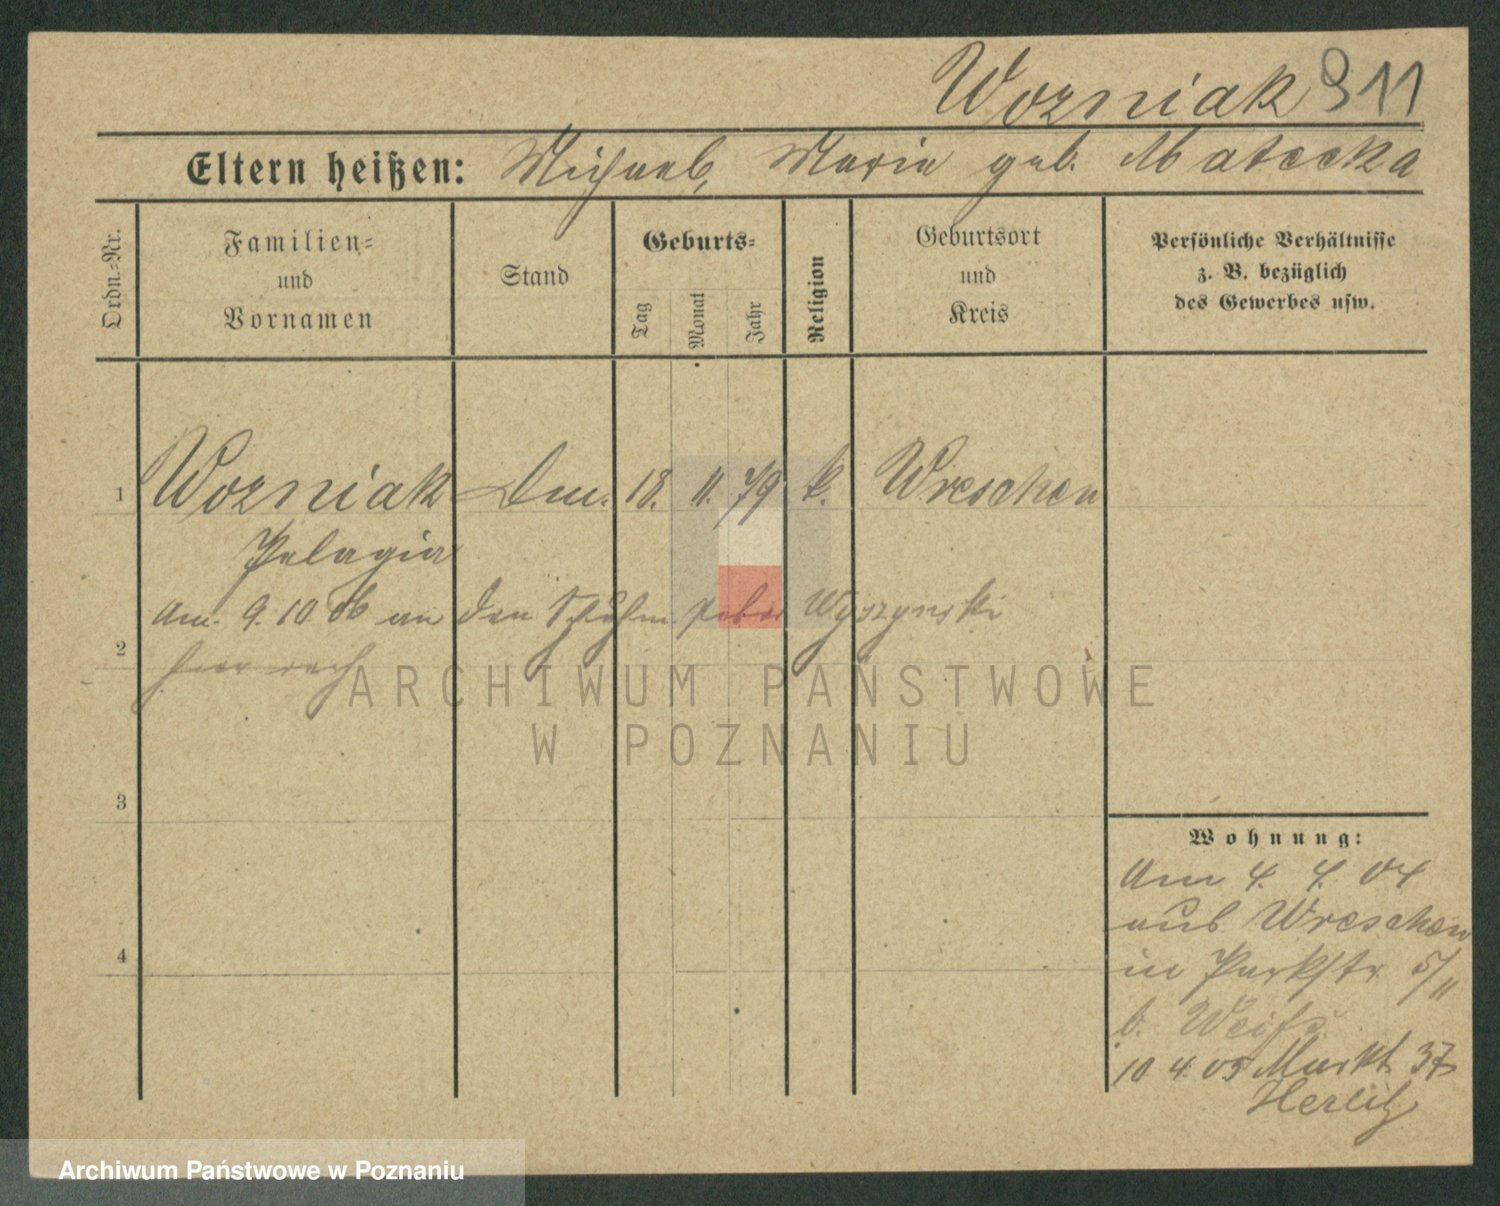 Wozniak 911
Eltern heißen: Michael, Maria geb. Matecka
Ordn.-Nr.
Familien-
und
Vornamen
Stand
Geburts-
Tag
Monat
Jahr
Religion
Geburtsort
und
Kreis
Persönliche Verhältnisse
z. B. bezüglich
des Gewerbes usw.
1 Wozniak 18. 11. 79 k. Wreschen
Pelagia
am 9. 10. 06 an den Schuhm Wyszynski
2
hier
3
4
Wohnung:
Am 4. 4. 04
aus Wreschen
in Parkstr 5/II
b.
10. 4. 05 Markt 37
Herlitz
ARCHIWUM PAŃSTWOWE
W POZNANIU
Archiwum Państwowe w Poznaniu